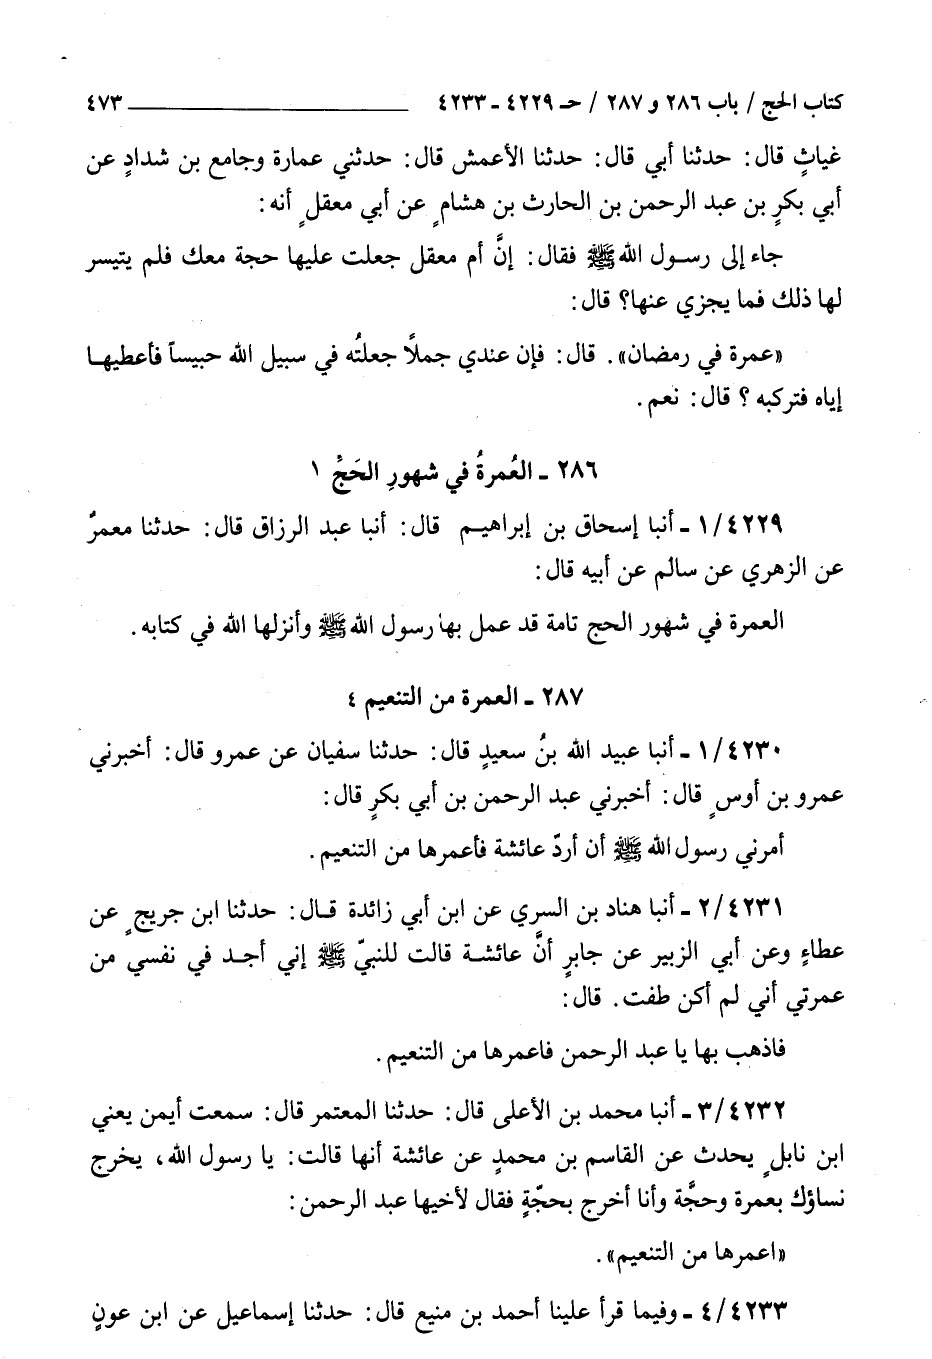 كتاب الحج / باب ٢٨٦ و ٢٨٧ / حـ ٤٢٢٩ ـ ٤٢٣٣ ٤٧٣
غياثٍ قال: حدثنا أبي قال: حدثنا الأعمش قال: حدثني عمارة وجامع بن شدادٍ عن
أبي بكرٍ بن عبد الرحمن بن الحارث بن هشامٍ عن أبي معقلٍ أنه:
جاء إلى رسول الله ﷺ فقال: إنَّ أم معقل جعلت عليها حجة معك فلم يتيسر
لها ذلك فما يجزي عنها؟ قال:
«عمرة في رمضان». قال: فإن عندي جملاً جعلتُه في سبيل الله حبيساً فأعطيها
إياه فتركبه ؟ قال: نعم.
٢٨٦ ـ العُمرةُ في شهورِ الحَجْ ١
١/٤٢٢٩ ـ أنبا إسحاق بن إبراهيم قال: أنبا عبد الرزاق قال: حدثنا معمرٌ
عن الزهري عن سالم عن أبيه قال:
العمرة في شهور الحج تامة قد عمل بها رسول الله ﷺ وأنزلها الله في كتابه.
٢٨٧ ـ العمرة من التنعيم ٤
١/٤٢٣٠ ـ أنبا عبيد الله بنُ سعيدٍ قال: حدثنا سفيان عن عمرو قال: أخبرني
عمرو بن أوسٍ قال: أخبرني عبد الرحمن بن أبي بكرٍ قال:
أمرني رسول الله ﷺ أن أردّ عائشة فأعمرها من التنعيم.
٢/٤٢٣١ ـ أنبا هناد بن السري عن ابن أبي زائدة قال: حدثنا ابن جريجٍ عن
عطاءٍ وعن أبي الزبير عن جابرٍ أنَّ عائشة قالت للنبيّ ﷺ إني أجد في نفسي من
عمرتي أني لم أكن طفت. قال:
فاذهب بها يا عبد الرحمن فاعمرها من التنعيم.
٣/٤٢٣٢ ـ أنبا محمد بن الأعلى قال: حدثنا المعتمر قال: سمعت أيمن يعني
ابن نابلٍ يحدث عن القاسم بن محمدٍ عن عائشة أنها قالت: يا رسول الله، يخرج
نساؤك بعمرة وحجَّة وأنا أخرج بحجّةٍ فقال لأخيها عبد الرحمن:
«اعمرها من التنعيم».
٤/٤٢٣٣ ـ وفيما قرأ علينا أحمد بن منيع قال: حدثنا إسماعيل عن ابن عونٍ